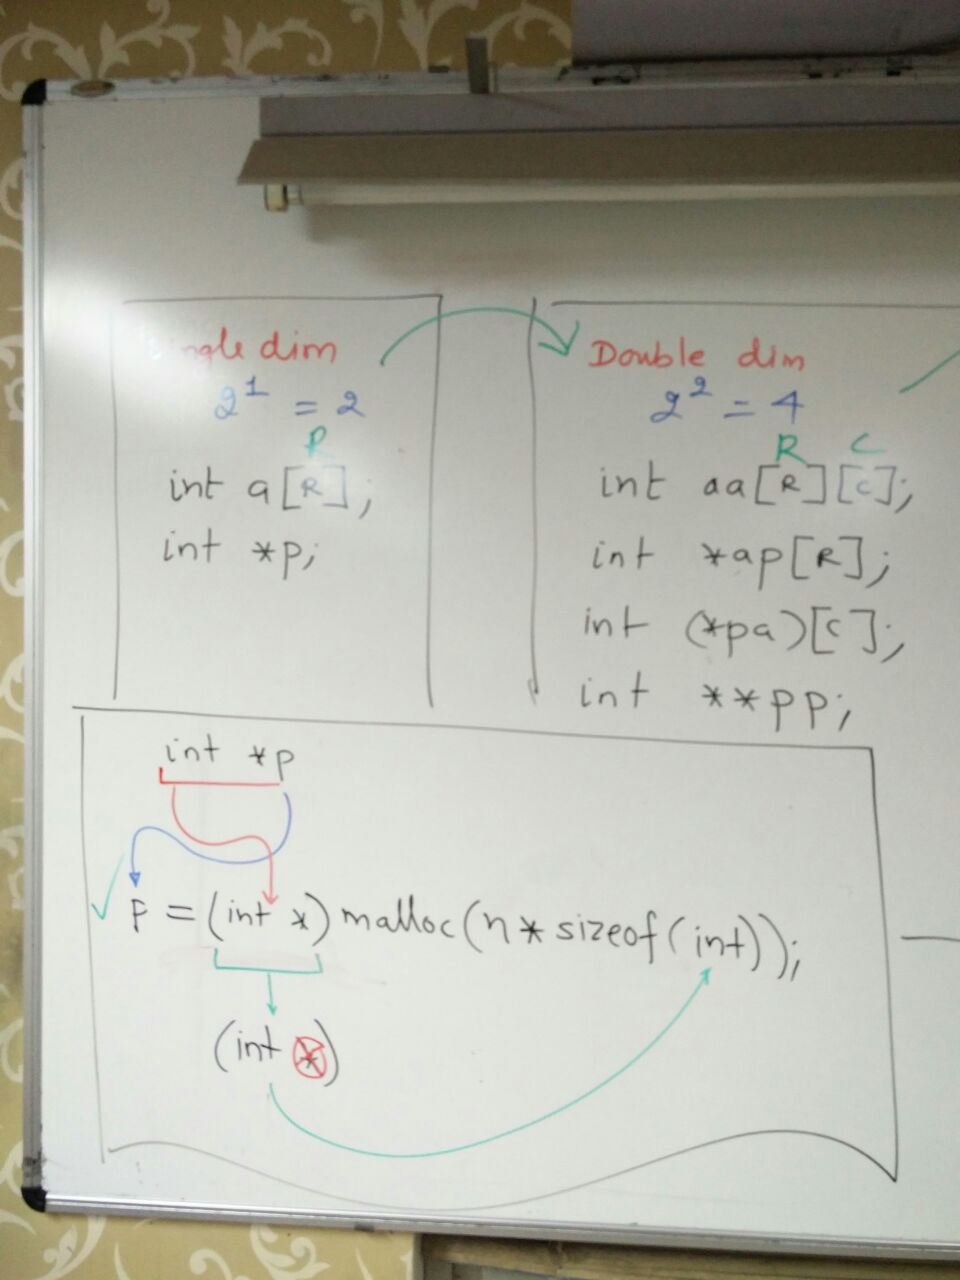 Single dim
2¹ = 2
R
int a[R];
int *p;
Double dim
2² = 4
R C
int aa[R][C];
int *ap[R];
int (*pa)[C];
int **pp;
int *p
p = (int *) malloc(n * sizeof(int));
(int *)